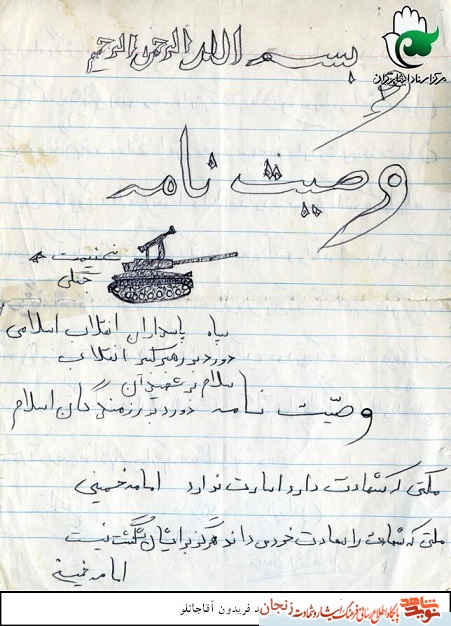 بسم الله الرحمن الرحیم
مرکز اسناد ایثارگران
وصیت نامه
غنیمت
جنگی
سپاه پاسداران انقلاب اسلامی
درود بر رهبر کبیر انقلاب
سلام بر شهیدان
وصیّت نامه درود بر رزمندگان اسلام
ملتی که شهادت دارد اسارت ندارد امام خمینی
ملتی که شهادت را سعادت خود می داند هرگز برایشان شکست نیست
امام خمینی
نوید شاهد
پایگاه اطلاع رسانی فرهنگ ایثار و شهادت زنجان
د فریدون آقاجانلو